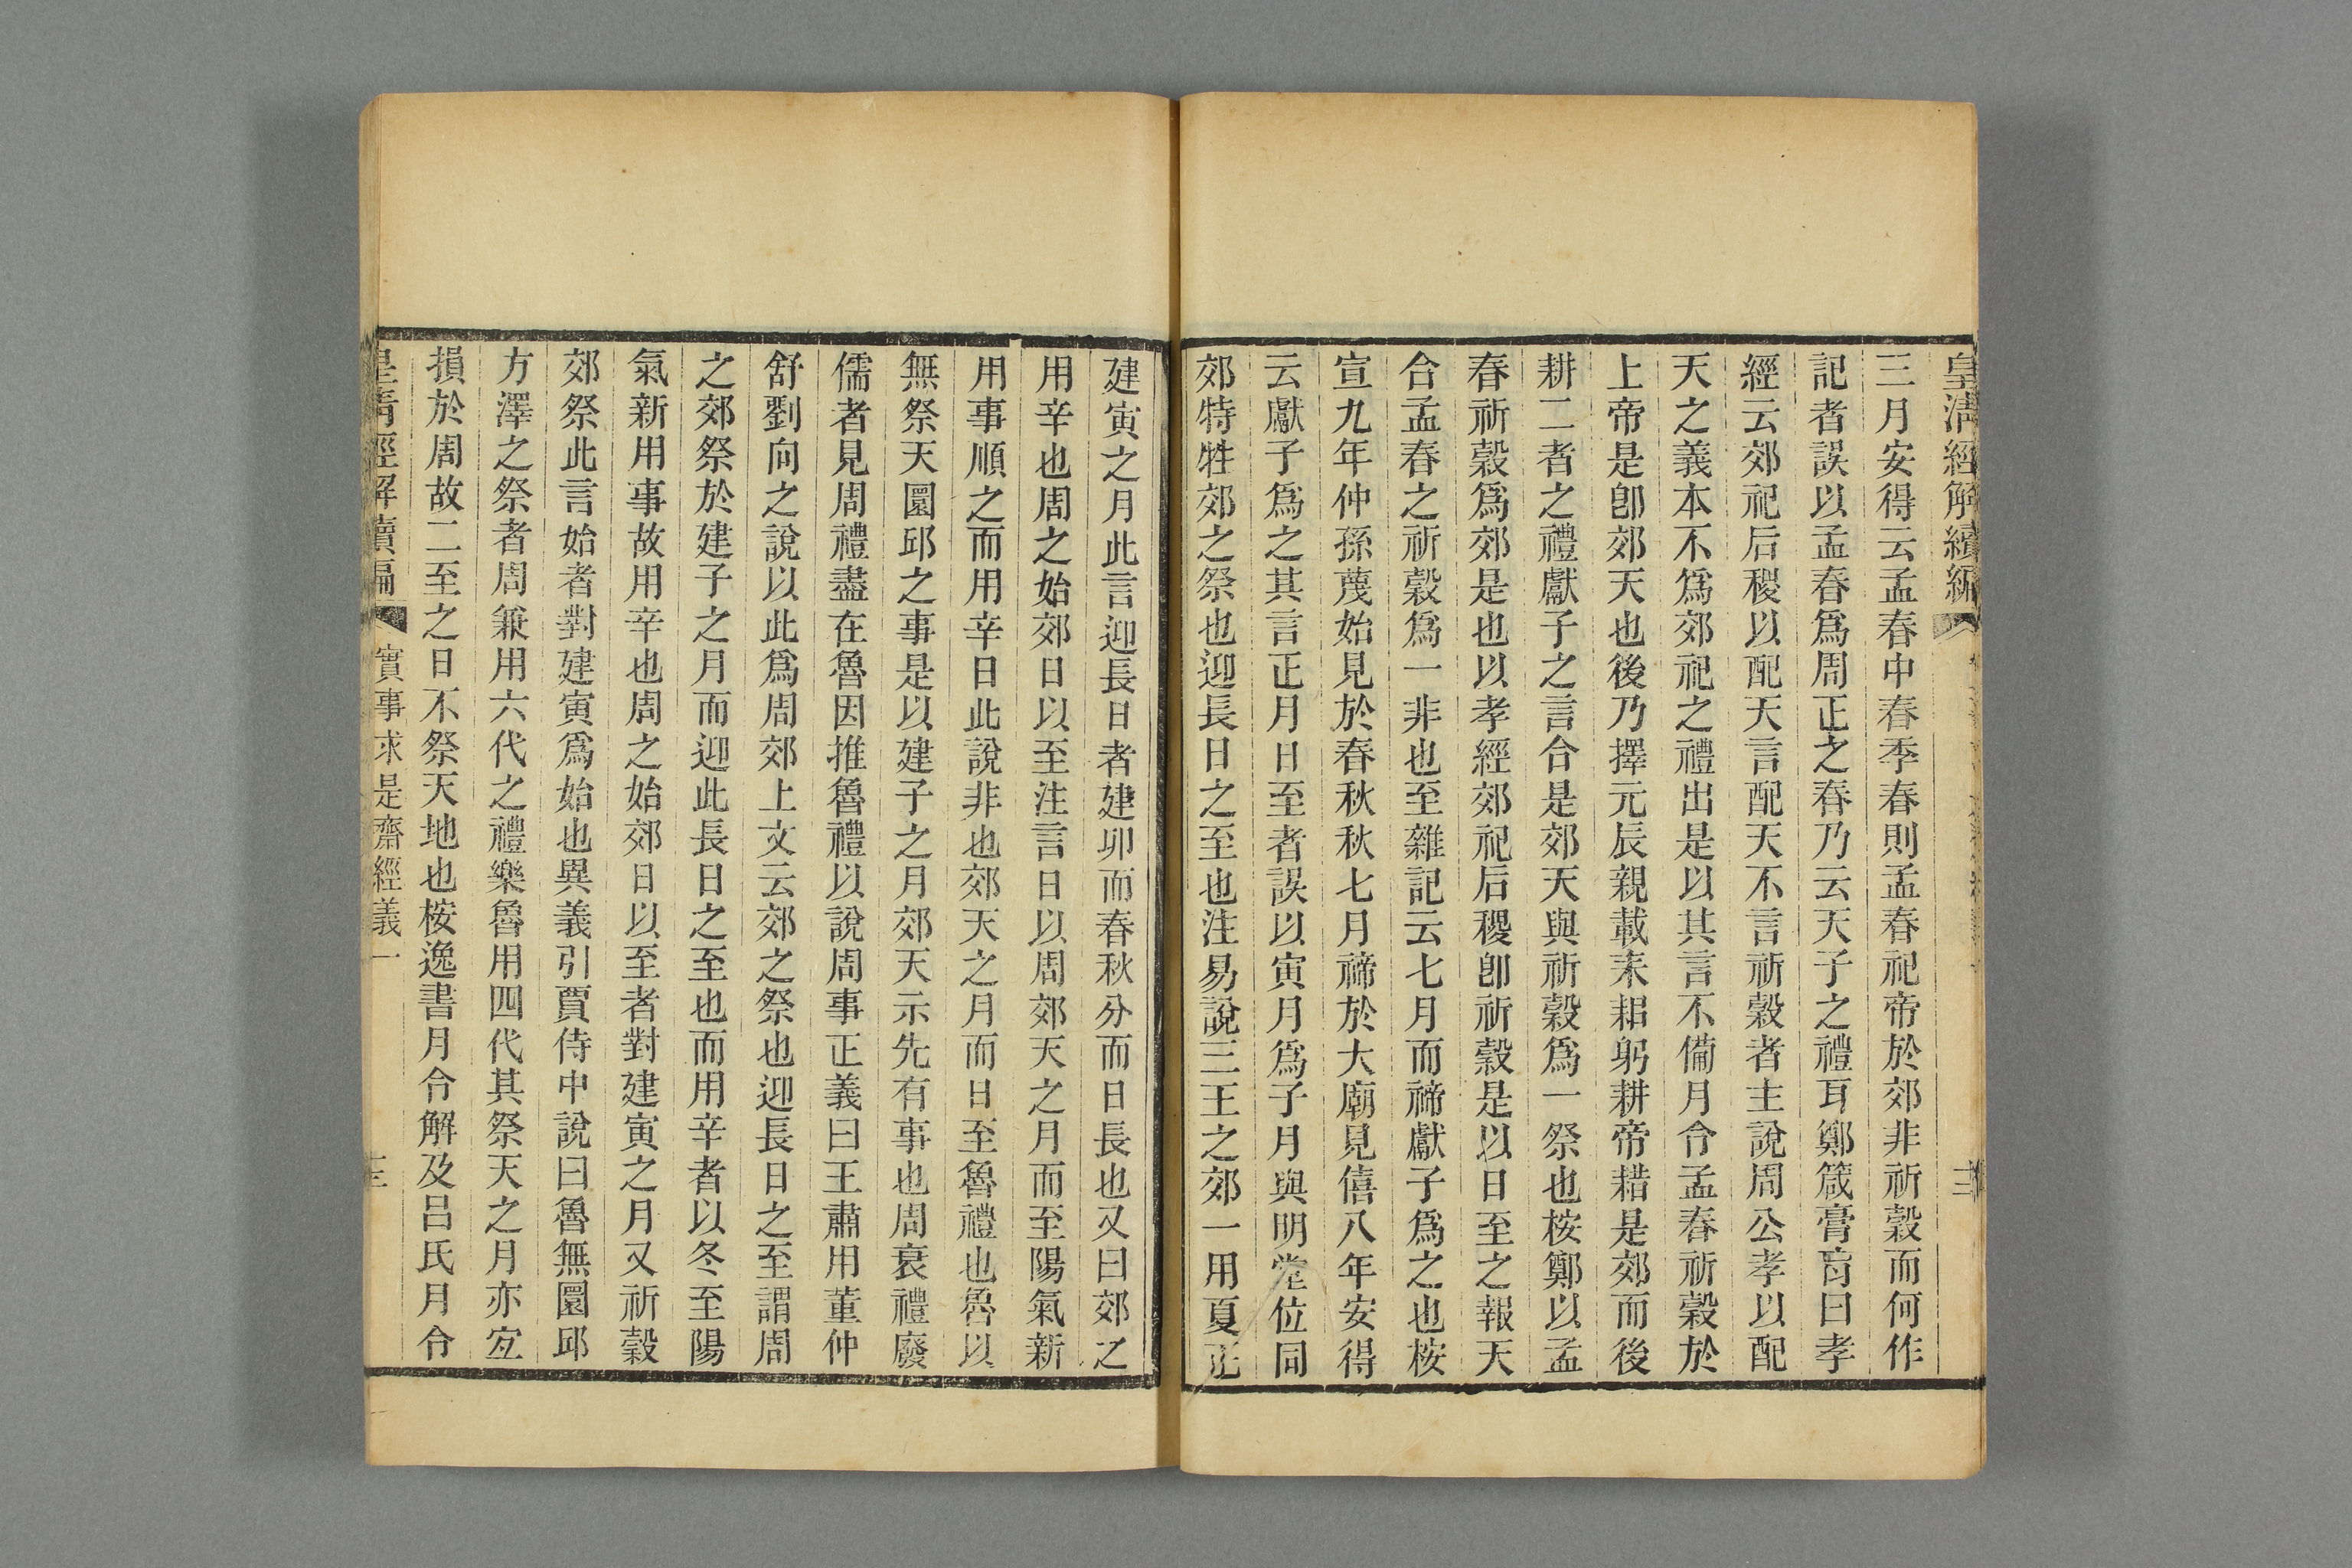 皇清經解續編
三月安得云孟春中春季春則孟春祀帝於郊非祈穀而何作
記者誤以孟春爲周正之春乃云天子之禮耳鄭箴膏肓曰孝
經云郊祀后稷以配天言配天不言祈穀者主說周公孝以配
天之義本不爲郊祀之禮出是以其言不備月令孟春祈穀於
上帝是卽郊天也後乃擇元辰親載耒耜躬耕帝耤是郊而後
耕二者之禮獻子之言合是郊天與祈穀爲一祭也桉鄭以孟
春祈穀爲郊是也以孝經郊祀后稷卽祈穀是以日至之報天
合孟春之祈穀爲一非也至雜記云七月而禘獻子爲之也桉
宣九年仲孫蔑始見於春秋秋七月禘於大廟見僖八年安得
云獻子爲之其言正月日至者誤以寅月爲子月與明堂位同
郊特牲郊之祭也迎長日之至也注易說三王之郊一用夏正
建寅之月此言迎長日者建卯而春秋分而日長也又曰郊之
用辛也周之始郊日以至注言日以周郊天之月而至陽氣新
用事順之而用辛日此說非也郊天之月而日至魯禮也魯以
無祭天圜邱之事是以建子之月郊天示先有事也周衰禮廢
儒者見周禮盡在魯因推魯禮以說周事正義曰王肅用董仲
舒劉向之說以此爲周郊上文云郊之祭也迎長日之至謂周
之郊祭於建子之月而迎此長日之至也而用辛者以冬至陽
氣新用事故用辛也周之始郊日以至者對建寅之月又祈穀
郊祭此言始者對建寅爲始也異義引賈侍中說曰魯無圜邱
方澤之祭者周兼用六代之禮樂魯用四代其祭天之月亦宐
損於周故二至之日不祭天地也桉逸書月令解及呂氏月令
皇清經解續編 實事求是齋經義一 三